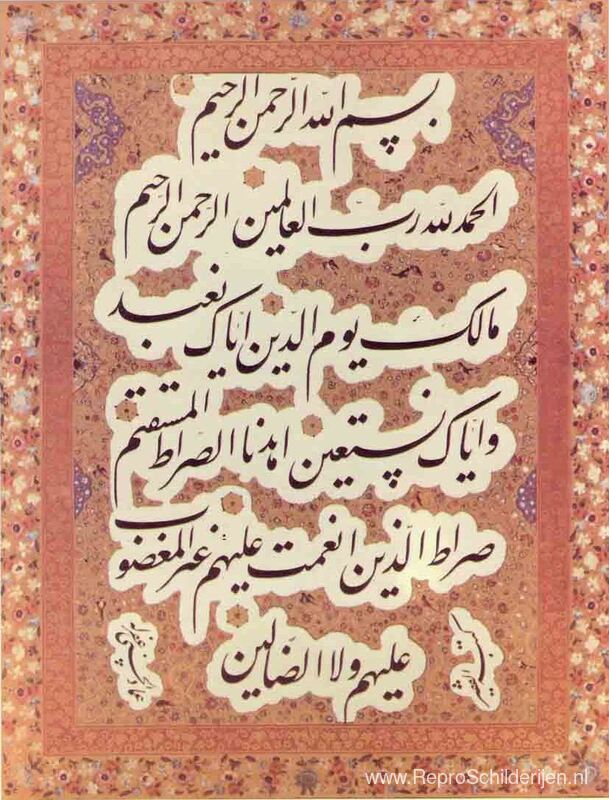 بسم الله الرّحمن الرحیم
الحمد لله رب العالمین الرحمن الرحیم
مالک یوم الدّین ایّاک نعبد
وایاک نستعین اهدنا الصراط المستقیم
صراط الّذین انعمت علیهم غیر المغضوب
علیهم ولا الضالّین
www.ReproSchilderijen.nl